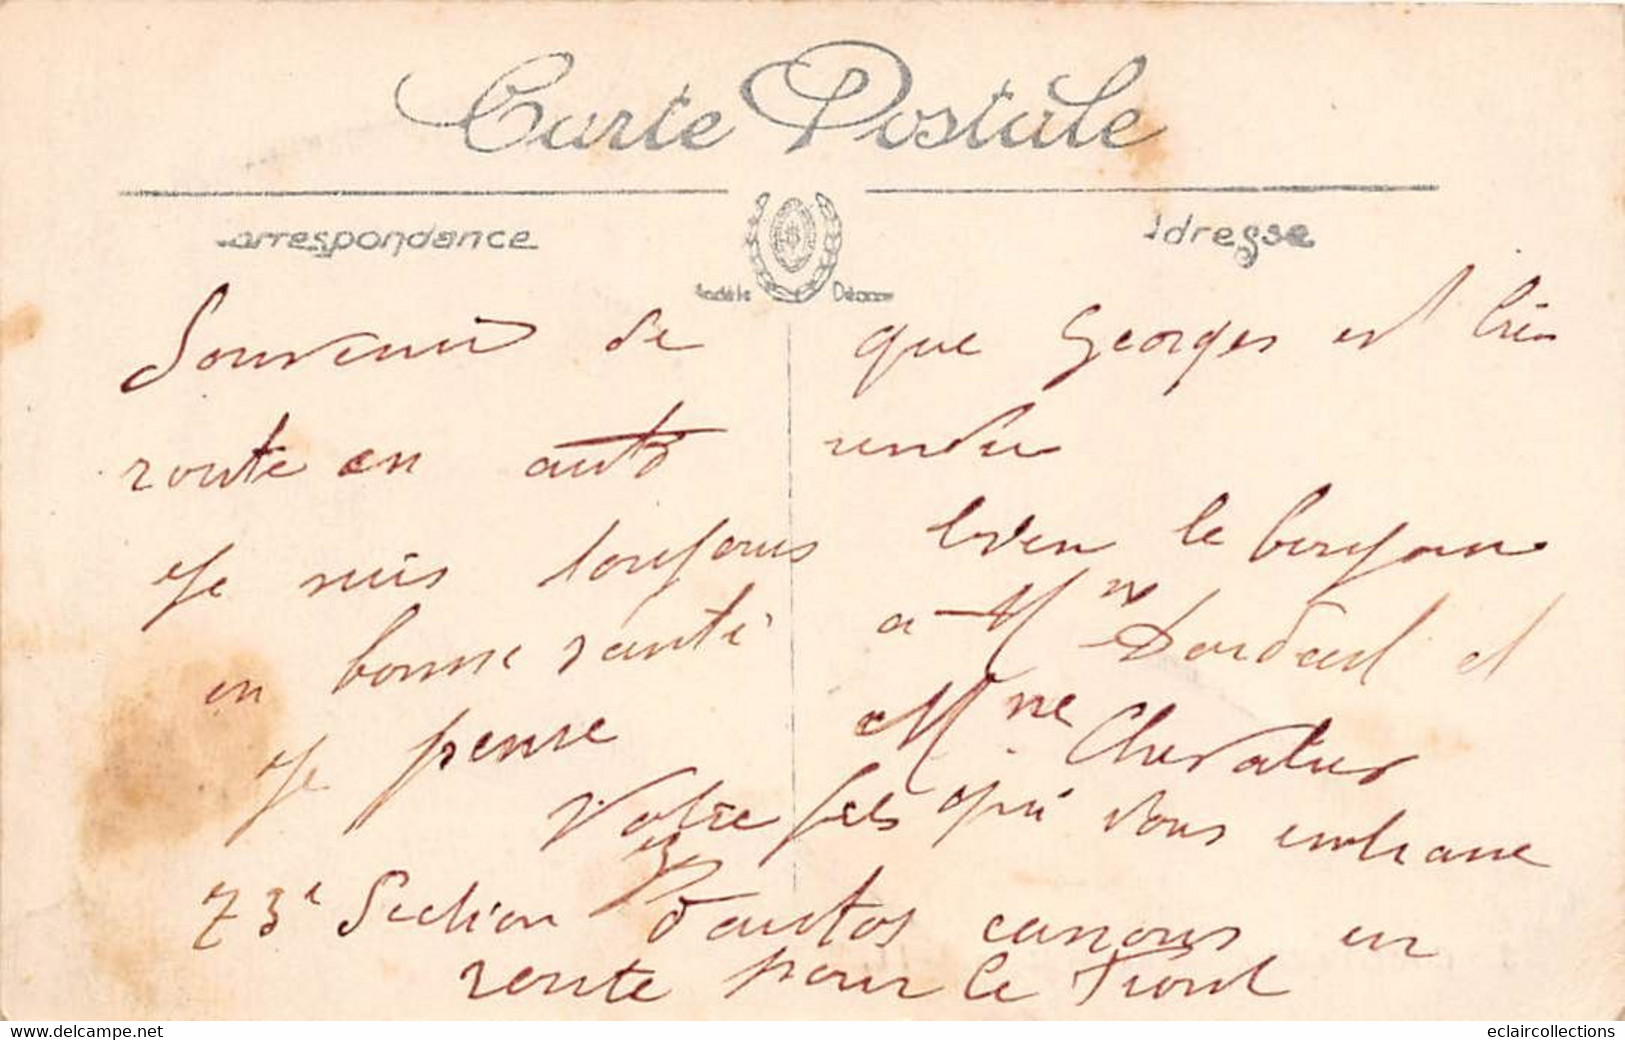 Carte Postale
Correspondance
Adresse
Modèle Déposé
Souvenir de
route en auto
Je suis toujours
en bonne santé
je pense
que Georges est bien
rendu
bien le bonjour
a Mme et
Mme Chevalier
Votre fils qui vous embrasse
73e Section d'autos canons en
route pour le Front
www.delcampe.net
eclaircollections